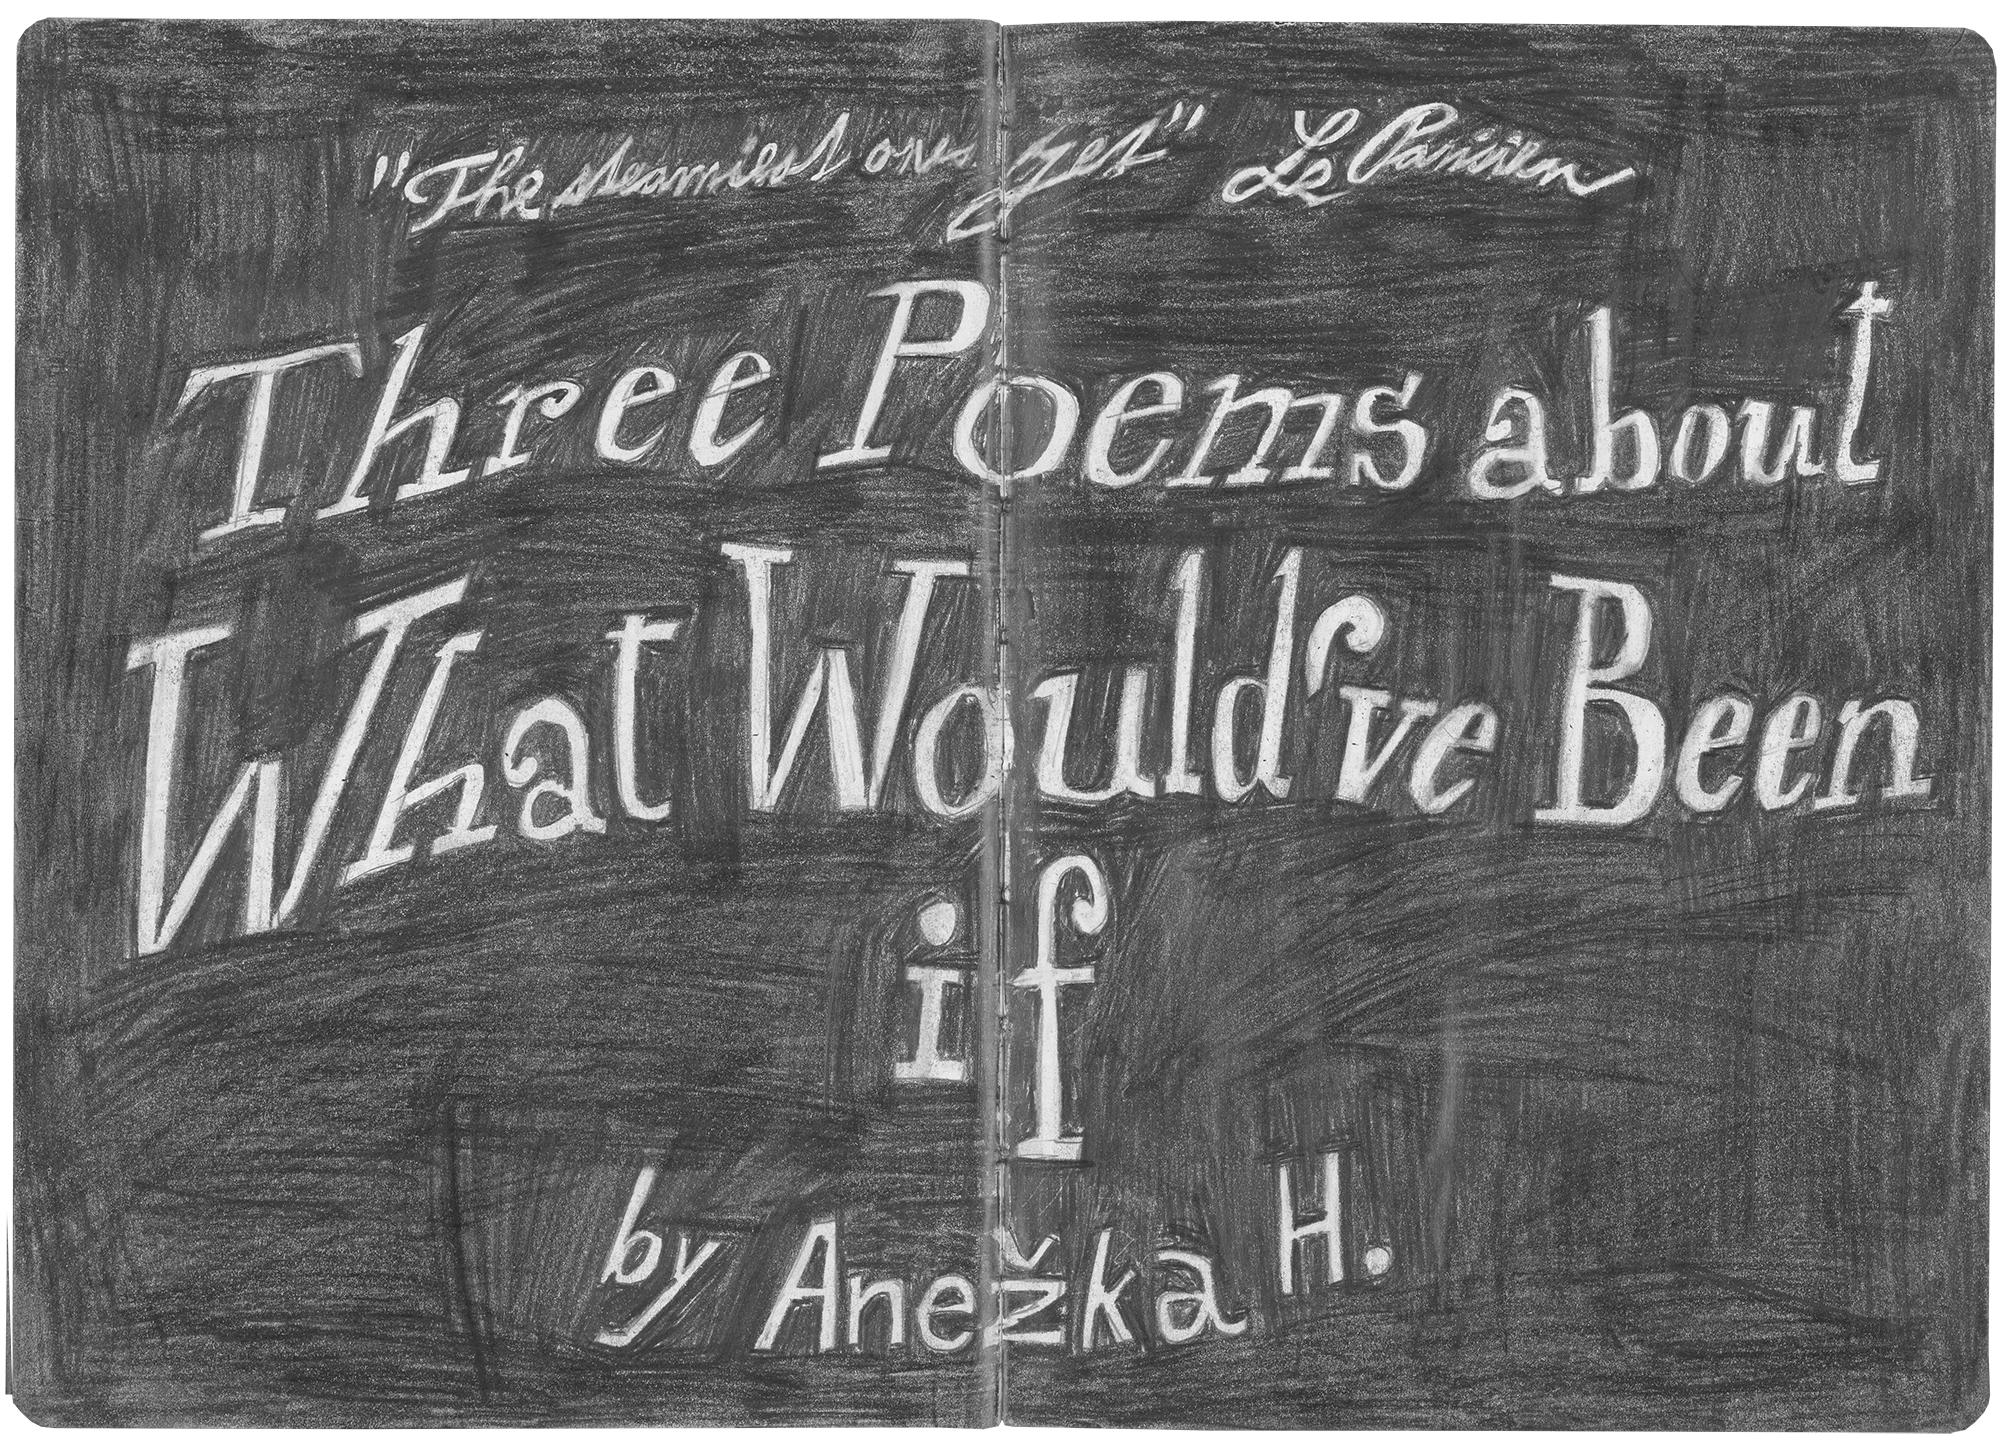 "The steamiest ones yet" Le Parisien
Three Poems about
What Would've Been
if
by Anežka H.